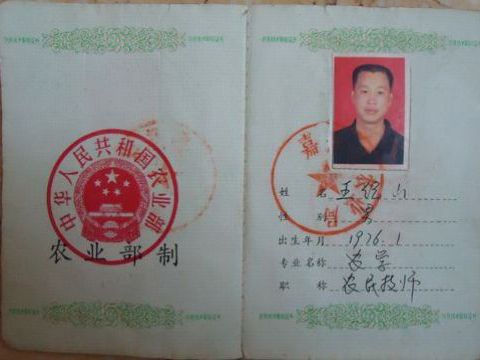 中华人民共和国农业部
农业部制
姓名 王
性别 男
出生年月 1976.1
专业名称 农学
职称 农民技师